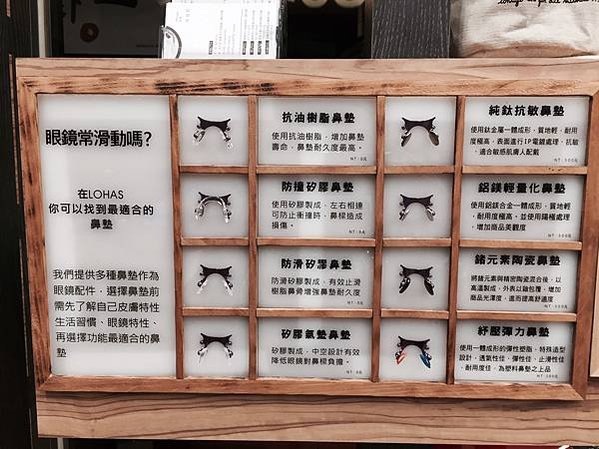 眼鏡常滑動嗎?
在LOHAS
你可以找到最適合的
鼻墊
我們提供多種鼻墊作為
眼鏡配件,選擇鼻墊前
需先了解自己皮膚特性
生活習慣、眼鏡特性、
再選擇功能最適合的鼻
墊
抗油樹脂鼻墊
使用抗油樹脂,增加鼻墊
壽命,鼻墊耐久度最高。
防撞矽膠鼻墊
使用矽膠製成,左右相連
可防止衝撞時,鼻樑造成
損傷。
防滑矽膠鼻墊
使用防滑矽膠製成,有效止滑
樹脂鼻骨增強鼻墊耐久度
矽膠氣墊鼻墊
矽膠製成,中空設計有效
降低眼鏡對鼻樑負擔。
純鈦抗敏鼻墊
使用鈦金屬一體成形,質地輕,耐用
度極高,表面進行IP電鍍處理,抗敏
,適合敏感肌膚人配戴
鋁鎂輕量化鼻墊
使用鋁鎂合金一體成形,質地輕
,耐用度極高,並使用陽極處理
,增加商品美觀度
鍺元素陶瓷鼻墊
將鍺元素與精密陶瓷混合後,以
高溫製成,外表以釉包覆,增加
商品光澤度,進而提高舒適度
紓壓彈力鼻墊
使用一體成形的彈性塑脂,特殊造型
設計,透氣性佳、彈性佳、止滑性佳
,耐用度佳,為塑料鼻墊之上品